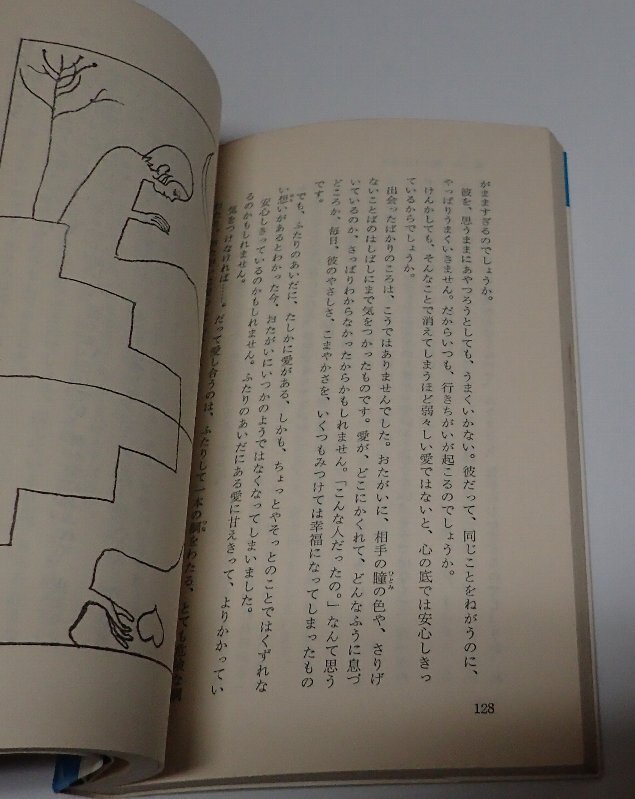 がままずぎるのでしょうか。
彼を、思うままにあやつろうとしても、うまくいかない。彼だって、同じことをねがうのに、
やっぱりうまくいきません。だからいつも、行きちがいが起こるのでしょうか。
けんかしても、そんなことで消えてしまうほど弱々しい愛ではないと、心の底では安心しきっ
ているからでしょうか。
出会ったばかりのころは、こうではありませんでした。おたがいに、相手の瞳の色や、さりげ
ないことばのはしばしにまで気をつかったものです。愛が、どこにかくれて、どんなふうに息づ
いているのか、さっぱりわからなかったからかもしれません。「こんな人だったの。」なんて思う
どころか、毎日、彼のやさしさ、こまやかさを、いくつもみつけては幸福になってしまったもの
です。
でも、ふたりのあいだに、たしかに愛がある、しかも、ちょっとやそっとのことではくずれな
い想いがあるとわかった今、おたがいにいつかのようではなくなってしまいました。
安心しきっているのかもしれません。ふたりのあいだにある愛に甘えきって、よりかかってい
るのかもしれません。
気をつけなければ――。だって愛し合うのは、ふたりして一本の綱をわたる、とても危険な綱
128